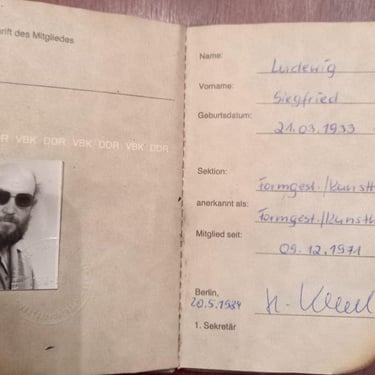 rift des Mitgliedes
DR VBK DDR VBK DDR VBK DDR
Name:
Ludewig
Vorname:
Siegfried
Geburtsdatum:
21.03.1933
Sektion:
Formgest./Kunsth
anerkannt als:
Formgest./Kunsth
Mitglied seit:
09.12.1971
Berlin,
20.5.1984
1. Sekretär